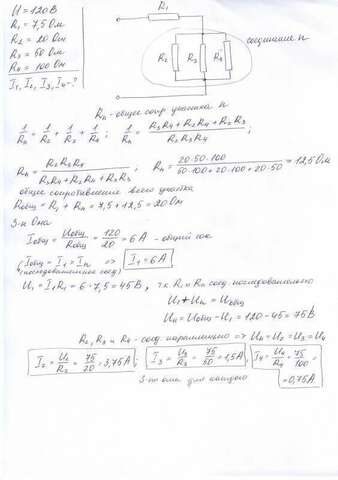 U = 120 В
R₁ = 7,5 Ом
R₂ = 20 Ом
R₃ = 50 Ом
R₄ = 100 Ом
I₁, I₂, I₃, I₄ - ?
R₁
R₂ R₃ R₄
соединение n
Rn - общее сопр участка n
1/Rn = 1/R₂ + 1/R₃ + 1/R₄ ; 1/Rn = (R₃R₄ + R₂R₄ + R₂R₃)/(R₂R₃R₄) ;
Rn = R₂R₃R₄/(R₃R₄ + R₂R₄ + R₂R₃) ; Rn = 20·50·100/(50·100 + 20·100 + 20·50) = 12,5 Ом
общее сопротивление всего участка
Rобщ = R₁ + Rn = 7,5 + 12,5 = 20 Ом
З-н Ома
Iобщ = Uобщ/Rобщ = 120/20 = 6 А - общий ток
Iобщ = I₁ = In => I₁ = 6 А
(последовательное соед)
U₁ = I₁R₁ = 6·7,5 = 45 В, т.к. R₁ и Rn соед. последовательно
U₁ + Un = Uобщ
Un = Uобщ - U₁ = 120 - 45 = 75 В
R₂, R₃ и R₄ - соед. параллельно => Un = U₂ = U₃ = U₄
I₂ = U₂/R₂ = 75/20 = 3,75 А ; I₃ = U₃/R₃ = 75/50 = 1,5 А ; I₄ = U₄/R₄ = 75/100 =
= 0,75 А
З-н ома для каждого